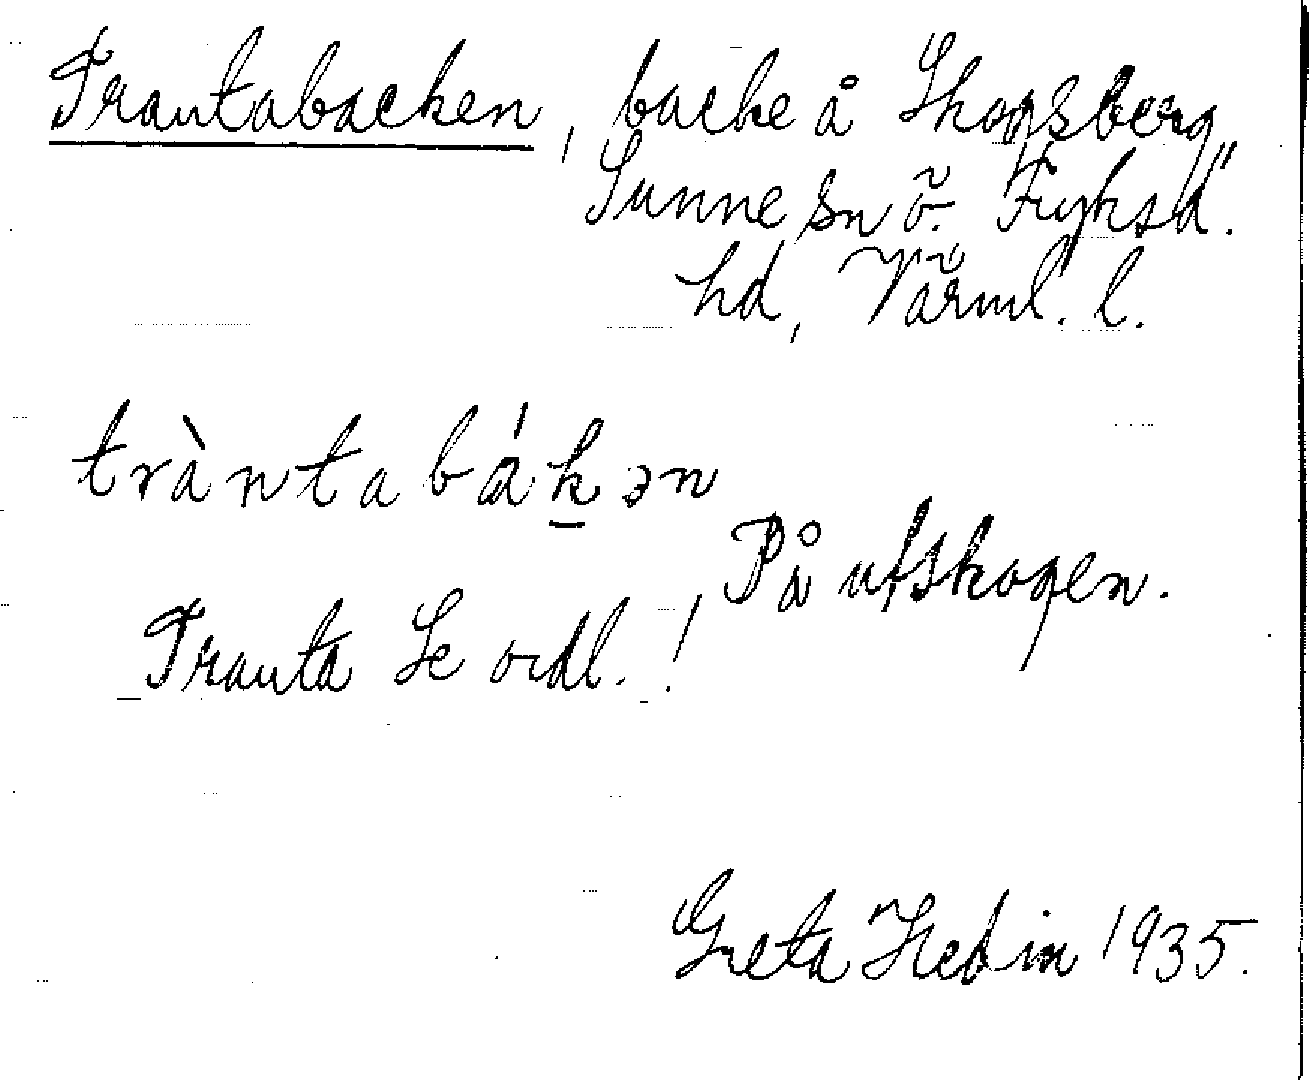 Trantabacken, backe å Skogsberg,
Sunne sn ö. Fryksd.
hd, Värml. l.
tràntabákən
På utskogen.
Tranta Se ordl.!
Greta Hedin 1935.